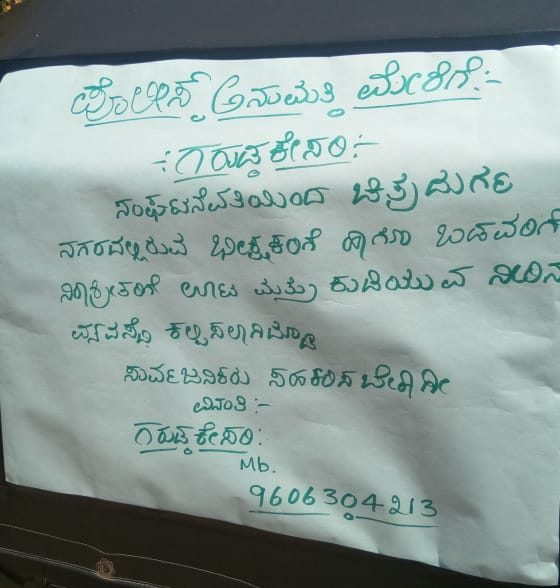 ಪೊಲೀಸ್ ಅನುಮತಿ ಮೇರೆಗೆ:-
-: ಗರುಡಕೇಸರಿ:-
ಸಂಘಟನೆವತಿಯಿಂದ ಚಿತ್ರದುರ್ಗ
ನಗರದಲ್ಲಿರುವ ಭೀಕ್ಷಕರಿಗೆ ಹಾಗೂ ಬಡವರಿಗೆ
ನಿರಾಶ್ರೀತರಿಗೆ ಊಟ ಮತ್ತು ಕುಡಿಯುವ ನೀರಿನ
ವ್ಯವಸ್ಥೆ ಕಲ್ಪಿಸಲಾಗಿದ್ದು
ಸಾರ್ವಜನಿಕರು ಸಹಕರಿಸಬೇಕಾಗಿ
ವಿನಂತಿ:-
ಗರುಡಕೇಸರಿ:
Mb.
9606304213